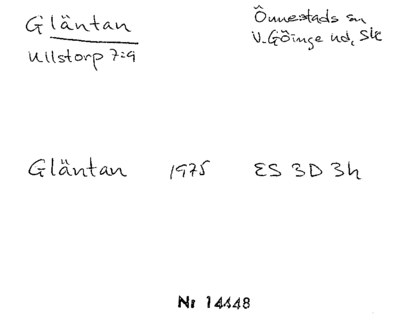 Gläntan
Ullstorp 7:9
Önnestads sn
V. Göinge hd, Sk
Gläntan 1975 ES 3D 3h
Nr 14448